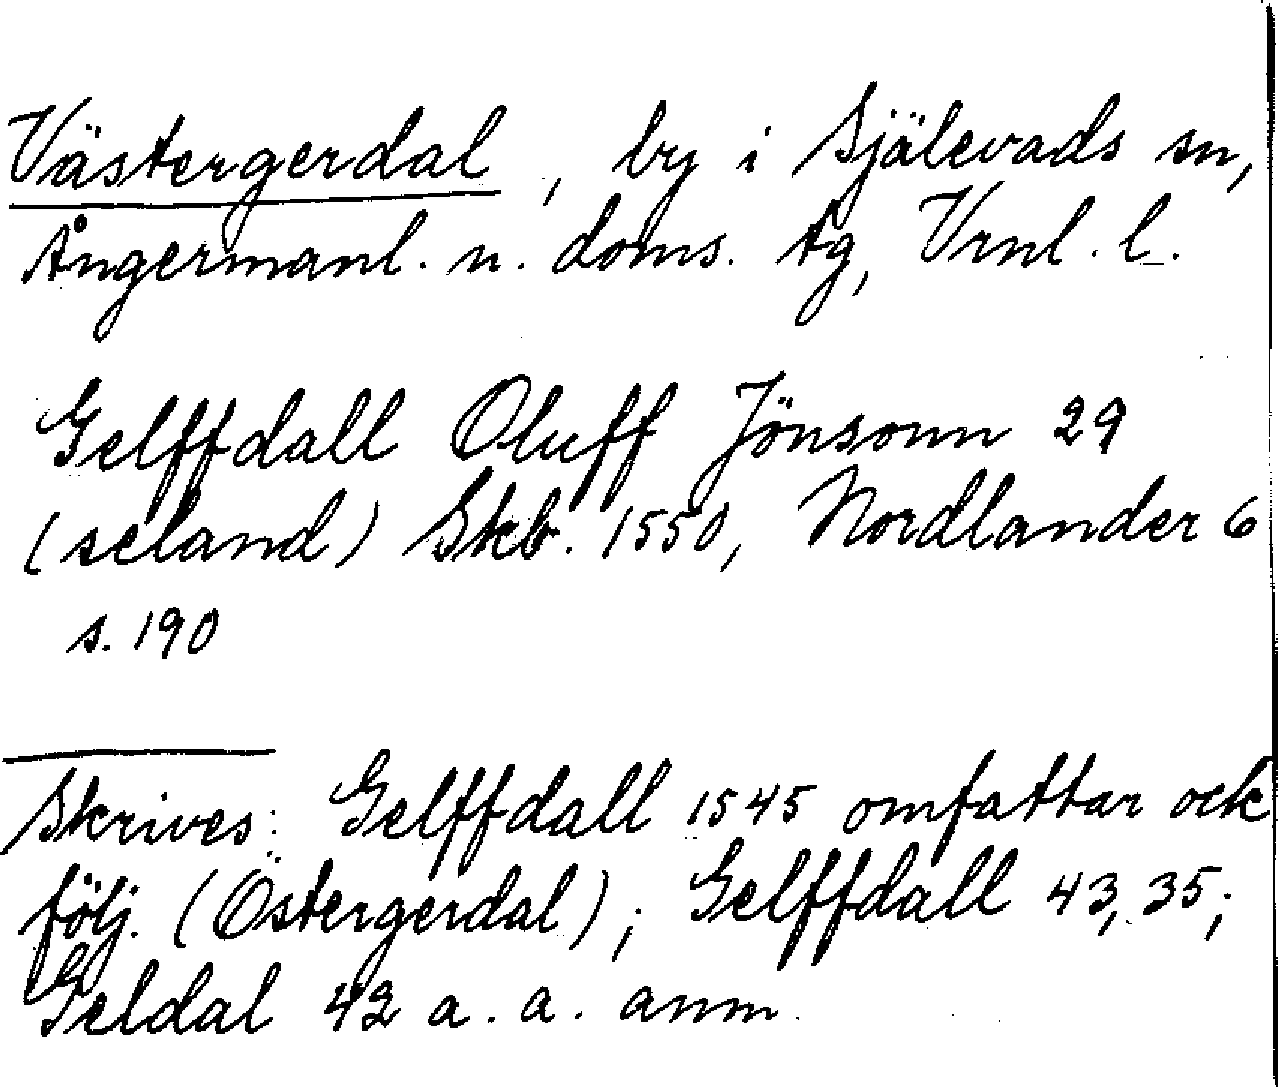 Västergerdal, by i Själevads sn,
Ångermanl. n. doms. tg, Vrnl. l.
Gelffdall Oluff Jönsonn 29
(seland) Skb. 1550, Nordlander 6
s. 190
Skrives: Gelffdall 1545 omfattar ock
följ. (Östergerdal); Gelffdall 43, 35;
Geldal 42 a. a. anm.